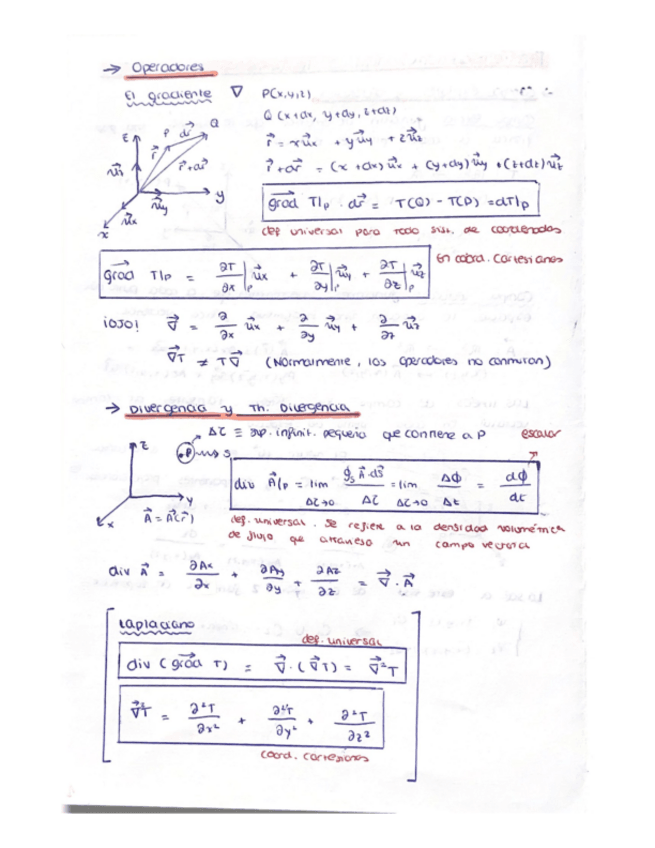 → Operadores
El gradiente ∇ P(x,y,z)
Q (x+dx, y+dy, z+dz)
z P dr⃗ Q
r⃗ = x u⃗x + y u⃗y + z u⃗z
u⃗z r⃗ r⃗+dr⃗ y
r⃗+dr⃗ = (x+dx) u⃗x + (y+dy) u⃗y + (z+dz) u⃗z
u⃗y
u⃗x
x
grad⃗ T|p dr⃗ = T(Q) - T(P) = dT|p
def universal para todo sist. de coordenadas
grad⃗ T|p = ∂T/∂x|p u⃗x + ∂T/∂y|p u⃗y + ∂T/∂z|p u⃗z En coord. cartesianas
¡OJO! ∇⃗ = ∂/∂x u⃗x + ∂/∂y u⃗y + ∂/∂z u⃗z
∇⃗T ≠ T∇⃗ (Normalmente, los operadores no conmutan)
→ Divergencia y Th. Divergencia
Δζ ≡ sup. infinit. pequeña que contiene a P escalar
z P S
y
x
A⃗ = A⃗(r⃗)
div A⃗|p = lim Δζ→0 ∮s A⃗·ds⃗ / Δζ = lim Δζ→0 ΔΦ/Δζ = dΦ/dζ
def. universal. Se refiere a la densidad volumétrica
de flujo que atraviesa un campo vectorial
div A⃗ = ∂Ax/∂x + ∂Ay/∂y + ∂Az/∂z = ∇⃗ · A⃗
Laplaciano
def. universal
div (grad⃗ T) = ∇⃗ · (∇⃗T) = ∇⃗²T
∇⃗²T = ∂²T/∂x² + ∂²T/∂y² + ∂²T/∂z²
coord. cartesianas